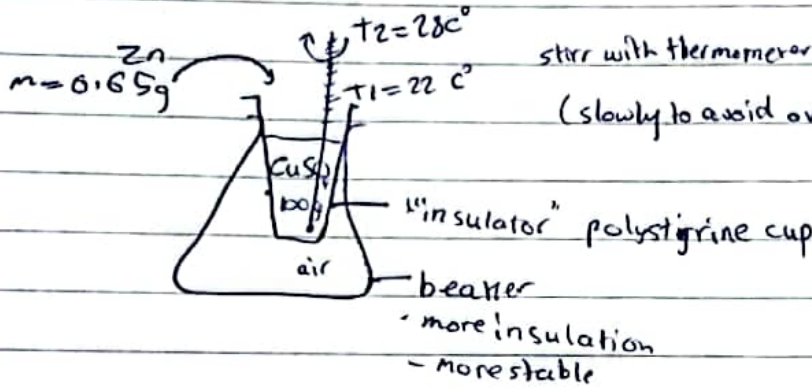 T2=28c°
Zn
m=0.65g
T1=22 c°
stirr with thermomeror
(slowly to avoid ov
CuSO4
100g
"insulator" polystigrine cup
air
beaker
• more insulation
- more stable